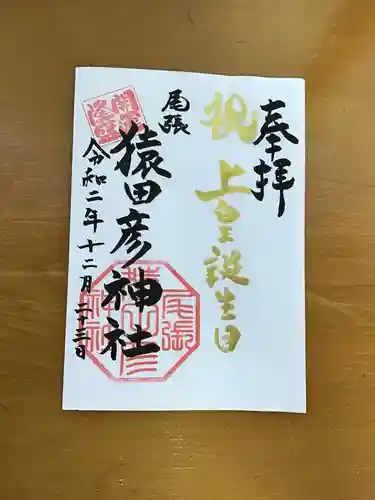 奉拝
祝 上皇誕生日
尾張
猿田彦神社
令和二年十二月二十三日
尾張
猿田彦
神社